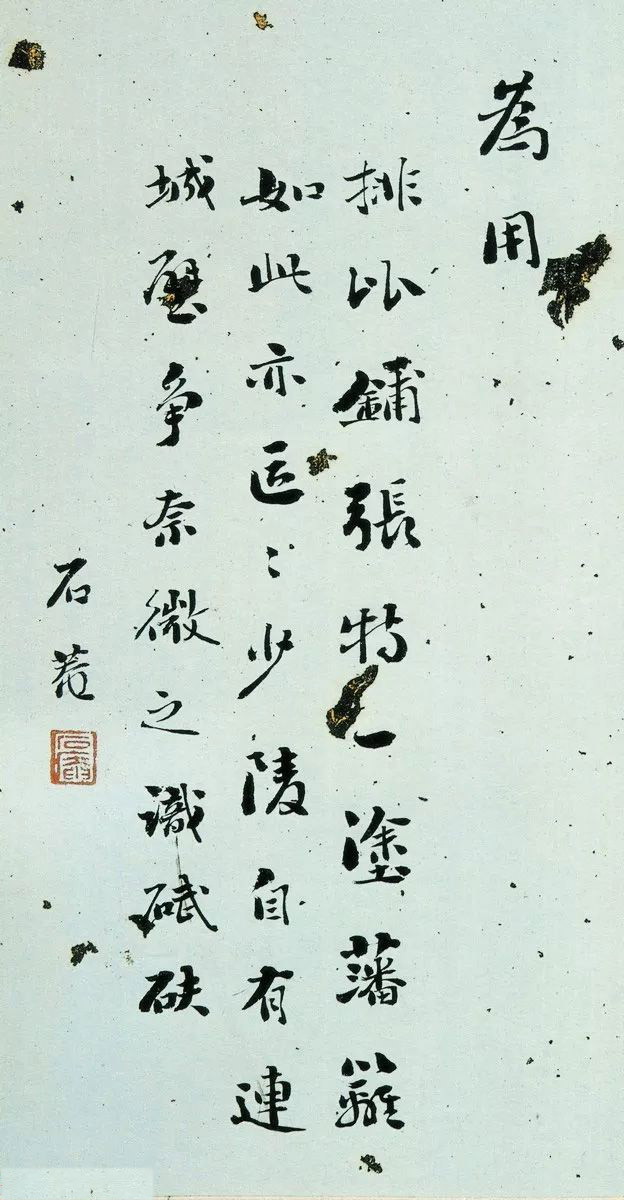 為用
排比鋪張特一塗藩籬
如此亦區〻少陵自有連
城璧爭奈微之識碔砆
石菴